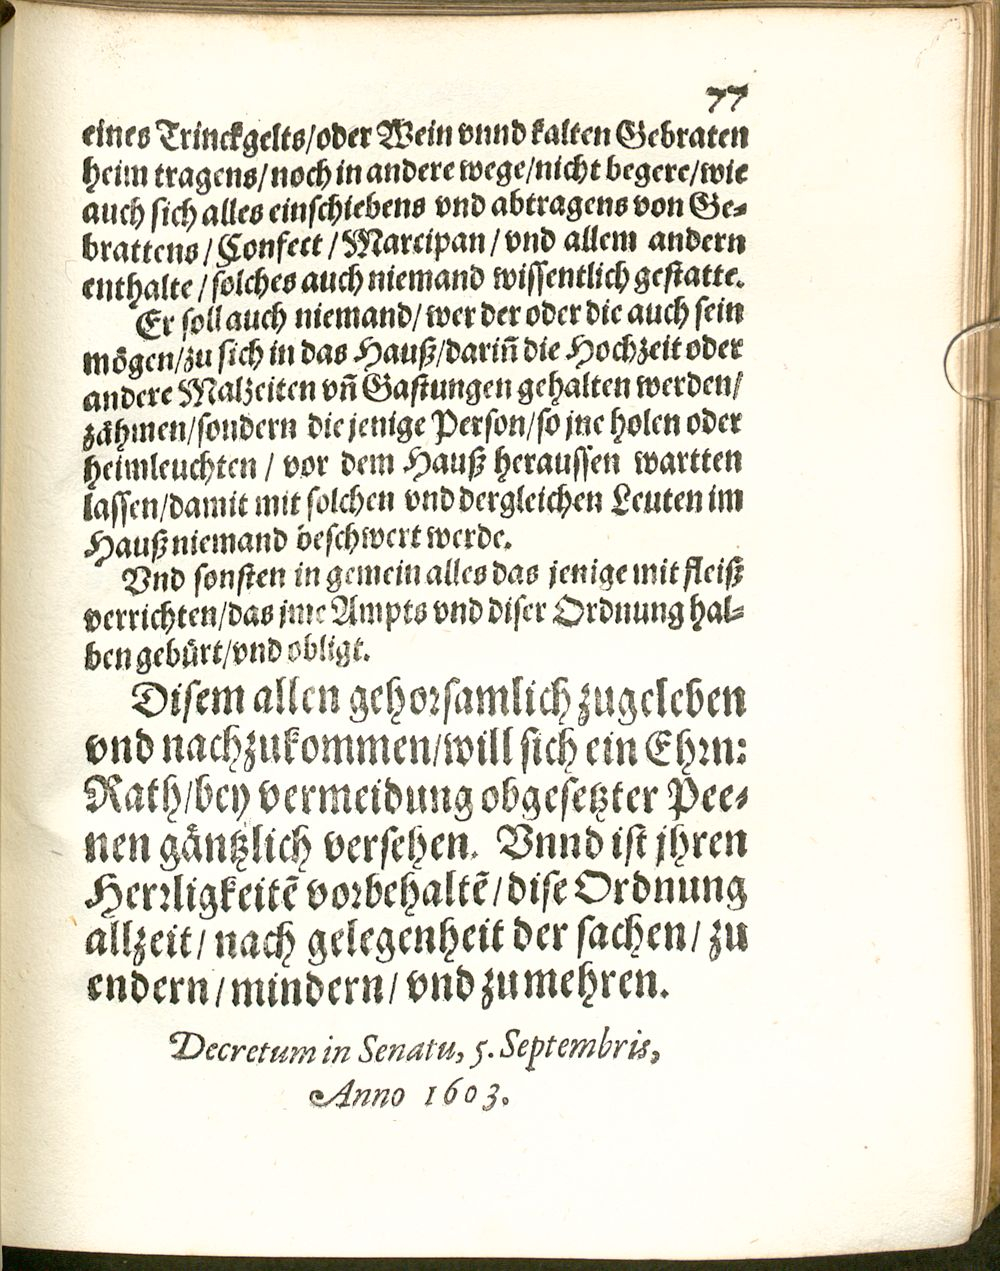 77
eines Trinckgelts/oder Wein vnnd kalten Gebraten
heim tragens/noch in andere wege/nicht begere/wie
auch sich alles einschiebens vnd abtragens von Ge-
brattens/Confect/Marcipan/vnd allem andern
enthalte/solches auch niemand wissentlich gestatte.
Er soll auch niemand/wer der oder die auch sein
mögen/zu sich in das Hauß/dariñ die Hochzeit oder
andere Malzeiten vñ Gastungen gehalten werden/
zähmen/sondern die jenige Person/so jne holen oder
heimleuchten/vor dem Hauß heraussen wartten
lassen/damit mit solchen vnd dergleichen Leuten im
Hauß niemand beschwert werde.
Vnd sonsten in gemein alles das jenige mit fleiß
verrichten/das jme Ampts vnd diser Ordnung hal-
ben gebürt/vnd obligt.
Disem allen gehorsamlich zugeleben
vnd nachzukommen/will sich ein Ehrn:
Rath/bey vermeidung obgesetzter Pee-
nen gäntzlich versehen. Vnnd ist jhren
Herrligkeitẽ vorbehaltẽ/dise Ordnung
allzeit/nach gelegenheit der sachen/zu
endern/mindern/vnd zu mehren.
Decretum in Senatu, 5. Septembris,
Anno 1603.